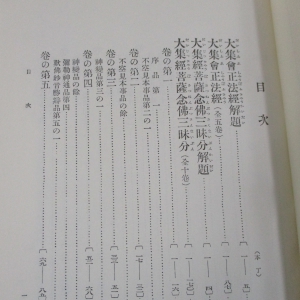 目次
(本丁)
大集會正法經解題
大集會正法經(全五卷)
大集經菩薩念佛三昧分解題
大集經菩薩念佛三昧分(全十卷)
卷の第一
序品第一
不空見本事品第二の一
卷の第二
不空見本事品の餘
卷の第三
神變品第三の一
卷の第四
神變品の餘
彌勒神通品第四
歎佛妙音勝辯品第五の一
卷の第五
目次
一